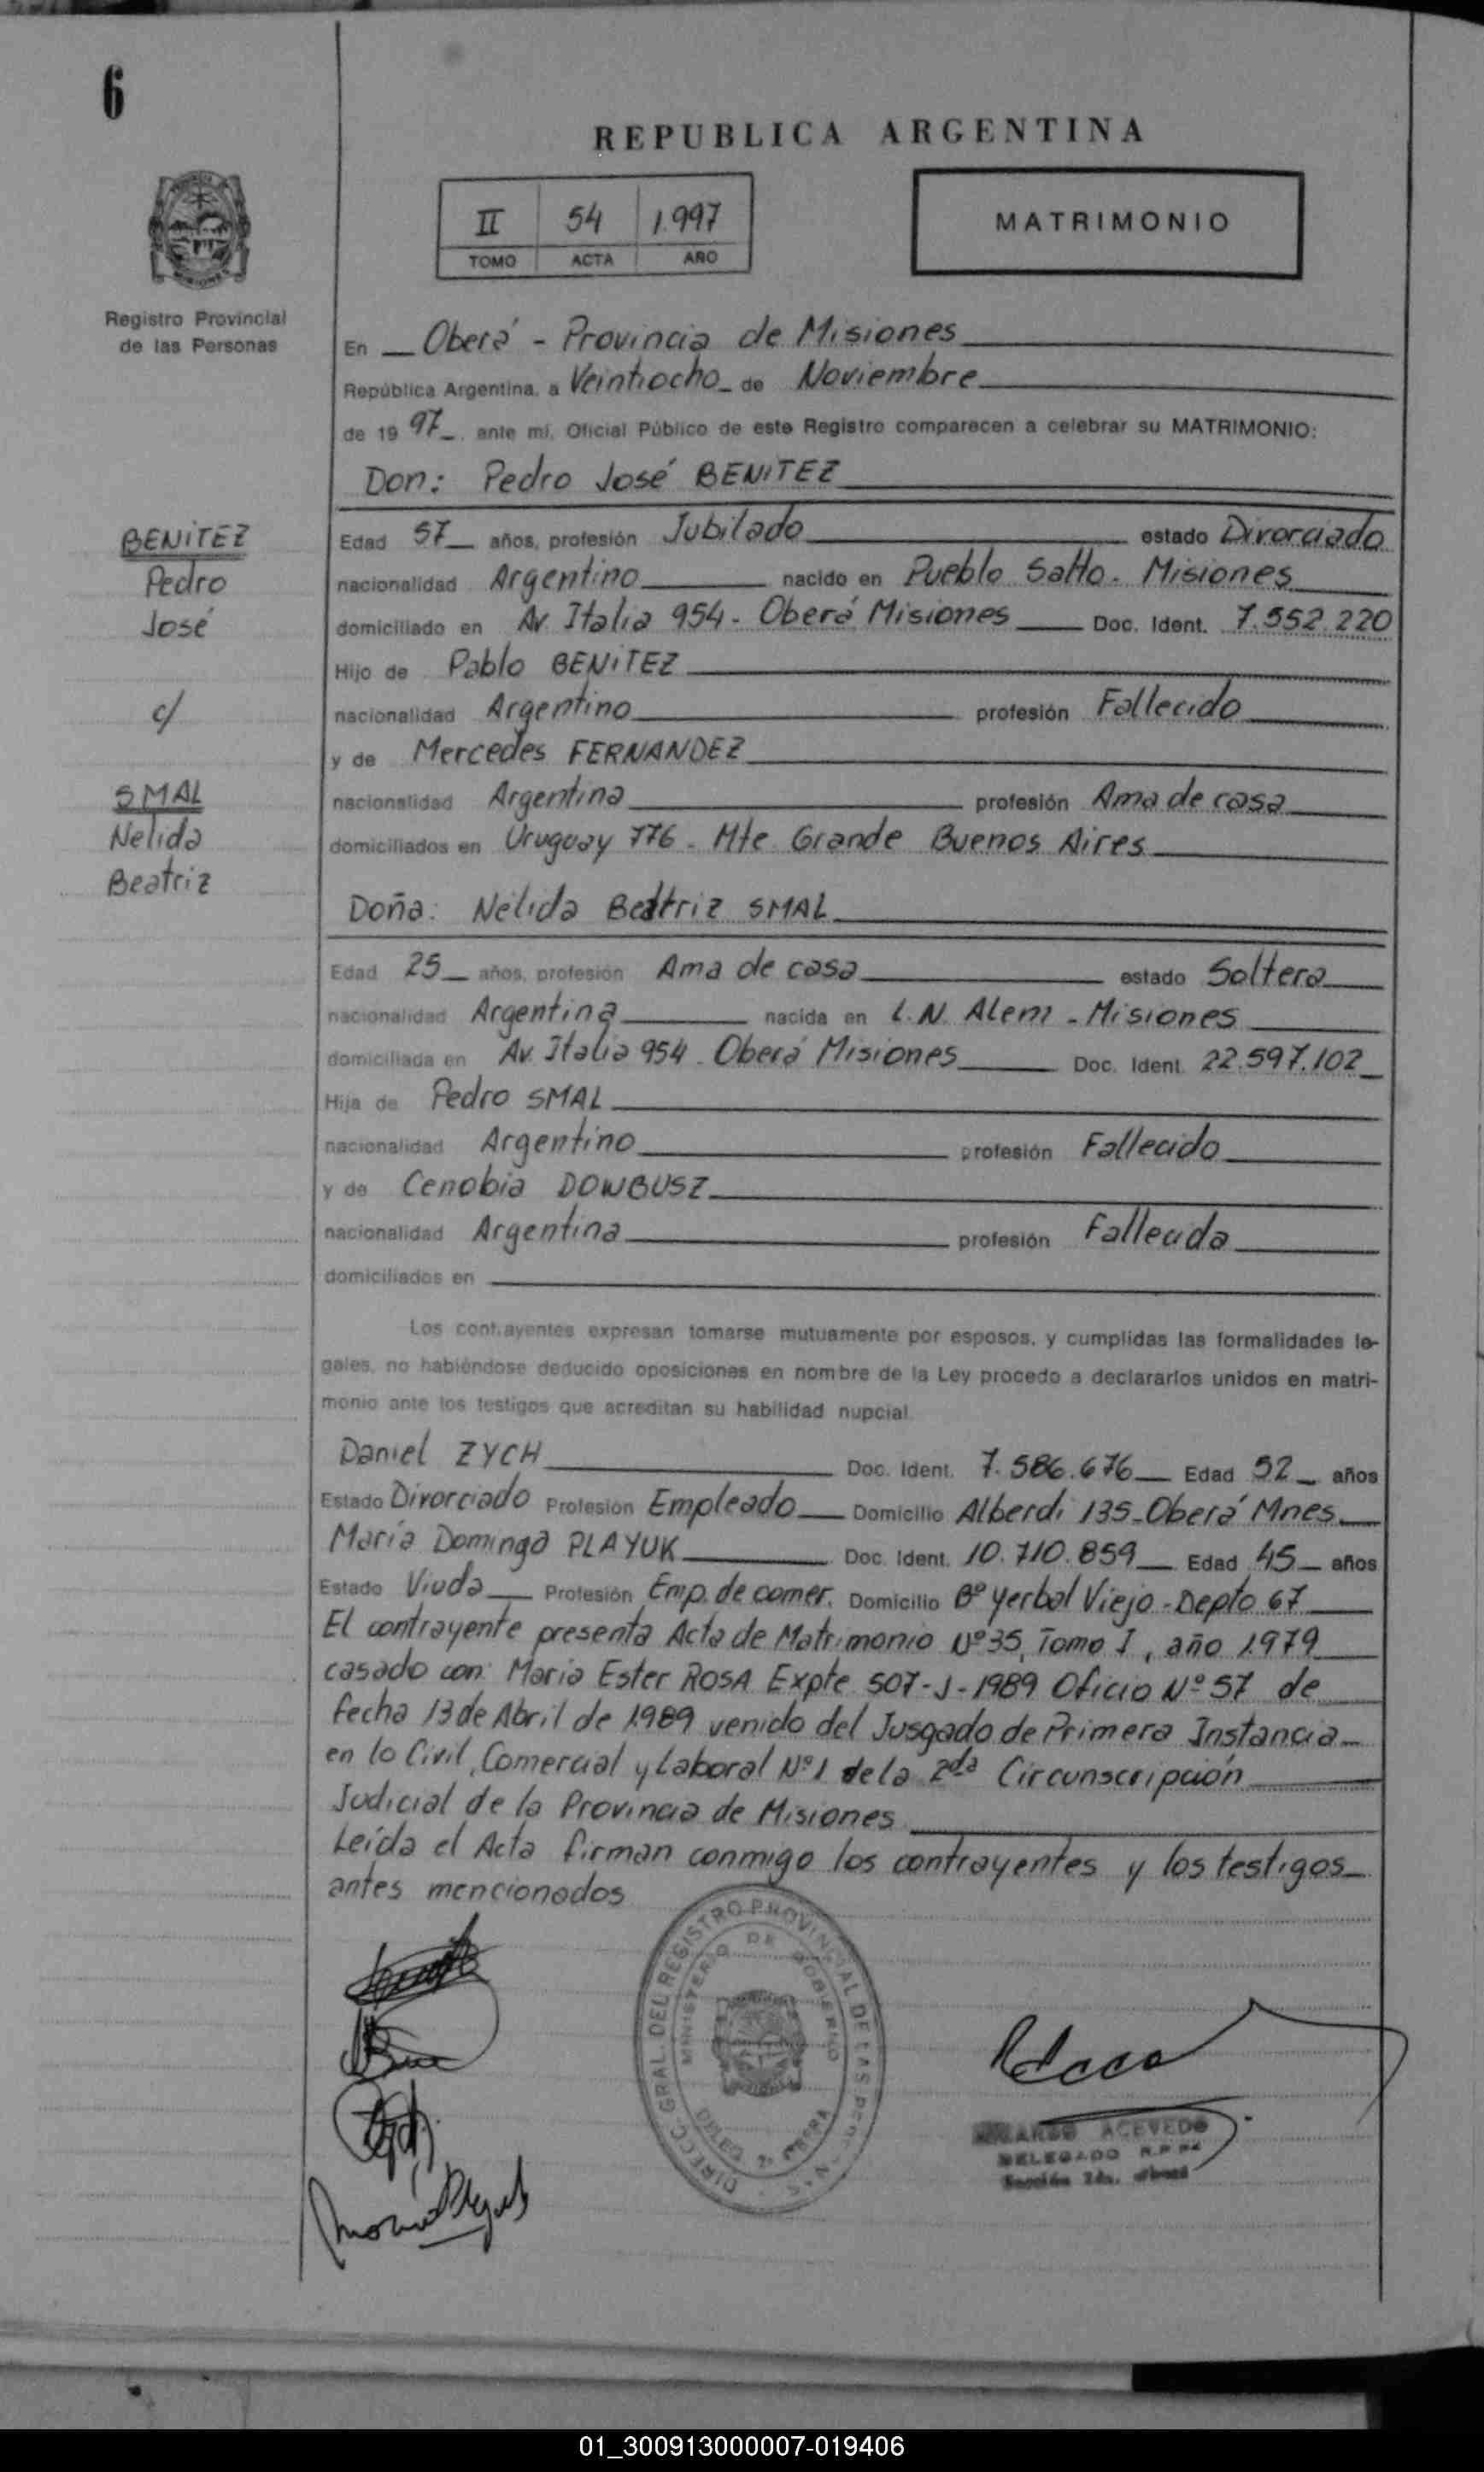 6
REPUBLICA ARGENTINA
II 54 1.997
TOMO ACTA AÑO
MATRIMONIO
Registro Provincial
de las Personas
En Oberá - Provincia de Misiones
República Argentina, a Veintiocho de Noviembre
de 19 97 ante mí, Oficial Público de este Registro comparecen a celebrar su MATRIMONIO:
Don: Pedro José BENITEZ
BENITEZ
Pedro
José
c/
SMAL
Nelida
Beatriz
Edad 57 años, profesión Jubilado estado Divorciado
nacionalidad Argentino nacido en Pueblo Salto - Misiones
domiciliado en Av. Italia 954 - Oberá Misiones Doc. Ident. 7.552.220
Hijo de Pablo BENITEZ
nacionalidad Argentino profesión Fallecido
y de Mercedes FERNANDEZ
nacionalidad Argentina profesión Ama de casa
domiciliados en Uruguay 776 - Mte Grande Buenos Aires
Doña: Nélida Beatriz SMAL
Edad 25 años, profesión Ama de casa estado Soltera
nacionalidad Argentina nacida en L.N. Alem - Misiones
domiciliada en Av. Italia 954 - Oberá Misiones Doc. Ident. 22.597.102
Hija de Pedro SMAL
nacionalidad Argentino profesión Fallecido
y de Cenobia DOWBUSZ
nacionalidad Argentina profesión Fallecida
domiciliados en
Los contrayentes expresan tomarse mutuamente por esposos, y cumplidas las formalidades le-
gales, no habiéndose deducido oposiciones en nombre de la Ley procedo a declararlos unidos en matri-
monio ante los testigos que acreditan su habilidad nupcial
Daniel ZYCH Doc. Ident. 7.586.676 Edad 52 años
Estado Divorciado Profesión Empleado Domicilio Alberdi 135 - Oberá Mnes
María Dominga PLAYUK Doc. Ident. 10.710.859 Edad 45 años
Estado Viuda Profesión Emp. de comer. Domicilio Bº Yerbal Viejo - Depto 67
El contrayente presenta Acta de Matrimonio Nº 35, Tomo I, año 1.979
casado con: María Ester ROSA Expte 507-J-1989 Oficio Nº 57 de
fecha 13 de Abril de 1.989 venido del Jusgado de Primera Instancia
en lo Civil, Comercial y Laboral Nº 1 de la 2da Circunscripción
Judicial de la Provincia de Misiones
Leída el Acta firman conmigo los contrayentes y los testigos
antes mencionados
DIRECC. GRAL. DEL REGISTRO PROVINCIAL DE LAS
MINISTERIO DE GOBIERNO
ACEVEDO
DELEGADO
Sección 2da.
01_300913000007-019406